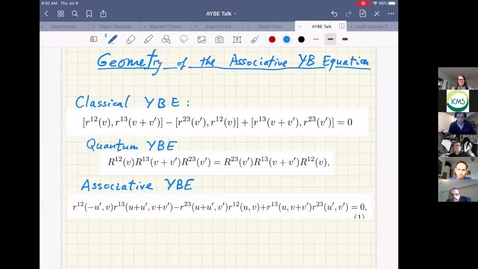 9:02 AM Thu Jul 9
AYBE Talk
AYBE Talk
Geometry of the Associative YB Equation
Classical YBE :
[r¹²(v), r¹³(v + v′)] − [r²³(v′), r¹²(v)] + [r¹³(v + v′), r²³(v′)] = 0
Quantum YBE
R¹²(v)R¹³(v + v′)R²³(v′) = R²³(v′)R¹³(v + v′)R¹²(v),
Associative YBE
r¹²(−u′, v)r¹³(u+u′, v+v′)−r²³(u+u′, v′)r¹²(u, v)+r¹³(u, v+v′)r²³(u′, v′) = 0,
(1)
ICMS